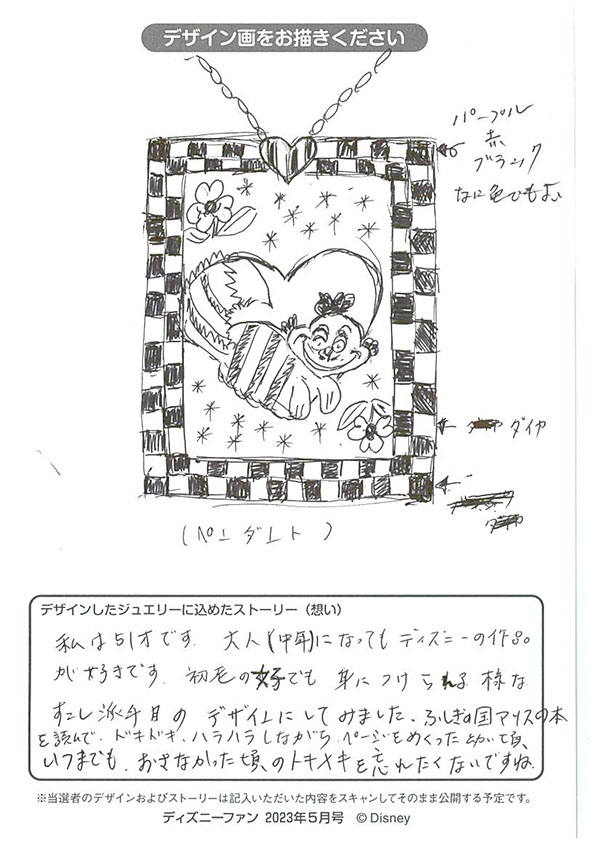 デザイン画をお描きください
パープル
赤
ブラック
なに色でもよい
ダイヤ
(ペンダント)
デザインしたジュエリーに込めたストーリー（想い）
私は51才です. 大人(中年)になってもディズニーの作品
が好きです. 初老の女子でも身につけられる様な
すこし派手目のデザインにしてみました. ふしぎの国アリスの本
を読んで、ドキドキ、ハラハラしながら、ページをめくった幼い頃、
いつまでも、おさなかった頃のトキメキを忘れたくないですね.
※当選者のデザインおよびストーリーは記入いただいた内容をスキャンしてそのまま公開する予定です。
ディズニーファン 2023年5月号 © Disney